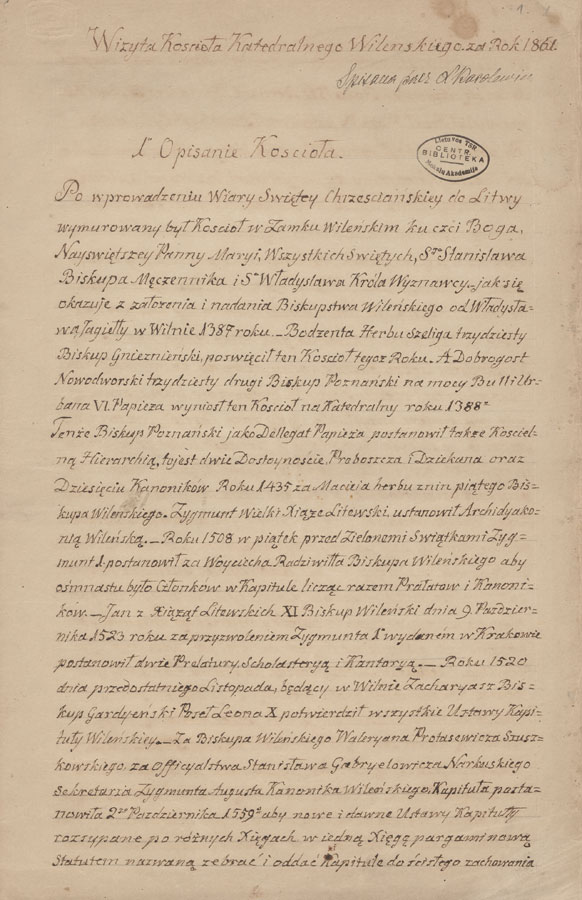 1.
Wizyta Koscioła Katedralnego Wilenskiego. za Rok 1861.
Spisana przez
Lietuvos TSR
CENTR.
BIBLIOTEKA
Mokslų Akademija
1º Opisanie Koscioła.
Po wprowadzeniu Wiary Swiętey Chrzesciańskiey do Litwy
wymurowany był Kosciół w Zamku Wilenskim ku czci Boga,
Nayswiętszey Panny Maryi, Wszystkich Swiętych, Sgo Stanisława
Biskupa Męczennika i Sgo Władysława Króla Wyznawcy. jak się
okazuje z założenia i nadania Biskupstwa Wileńskiego od Władysła-
wa Jagiełły w Wilnie 1387 roku. – Bodzenta Herbu Szeliga trzydziesty
Biskup Gnieznieński, poswięcił ten Kosciół tegoż Roku. A Dobrogost
Nowodworski trzydziesty drugi Biskup Poznański na mocy Bulli Ur-
bana VI. Papieża wyniosł ten Kosciół na Katedralny roku 1388º
Tenże Biskup Poznański jako Dellegat Papieża postanowił także Kosciel-
ną Hierarchią, to jest dwie Dostoynoście, Proboszcza i Dziekana oraz
Dziesięciu Kanoników Roku 1435 za Macieja herbu znin piątego Bis=
kupa Wileńskiego. Zygmunt Wielki Xiąże Litewski ustanowił Archidyako-
nią Wileńską. – Roku 1508 w piątek przed Zielonemi Swiątkami Zyg=
munt 1. postanowił za Woyciecha Radziwiłła Biskupa Wileńskiego aby
ośmnastu było Członków w Kapitule licząc razem Prałatow i Kanoni=
kow. – Jan z Xiążąt Litewskich XI Biskup Wileński dnia 9. Pazdzier=
nika 1523 roku za przyzwoleniem Zygmunta 1º wydanem w Krakowie
postanowił dwie Prelatury, Scholasteryą i Kantoryą. – Roku 1520
dnia przedostatniego Listopada, będący w Wilnie Zacharyasz Bis=
kup Gardyeński Poseł Leona X potwierdził wszystkie Ustawy Kapi-
tuły Wileńskiey. – Za Biskupa Wileńskiego Waleryana Protasewicza Szusz=
kowskiego, za Officyalstwa Stanisława Gabryelowicza Narkuskiego
Sekretarza Zygmunta Augusta Kanonika Wileńskiego, Kapituła posta-
nowiła 2go Pazdziernika 1559º aby nowe i dawne Ustawy Kapituły
rozsypane po różnych Xięgach w iedną Xięgę pargaminową
Statutem nazwaną zebrać i oddać Kapitule do scisłego zachowania